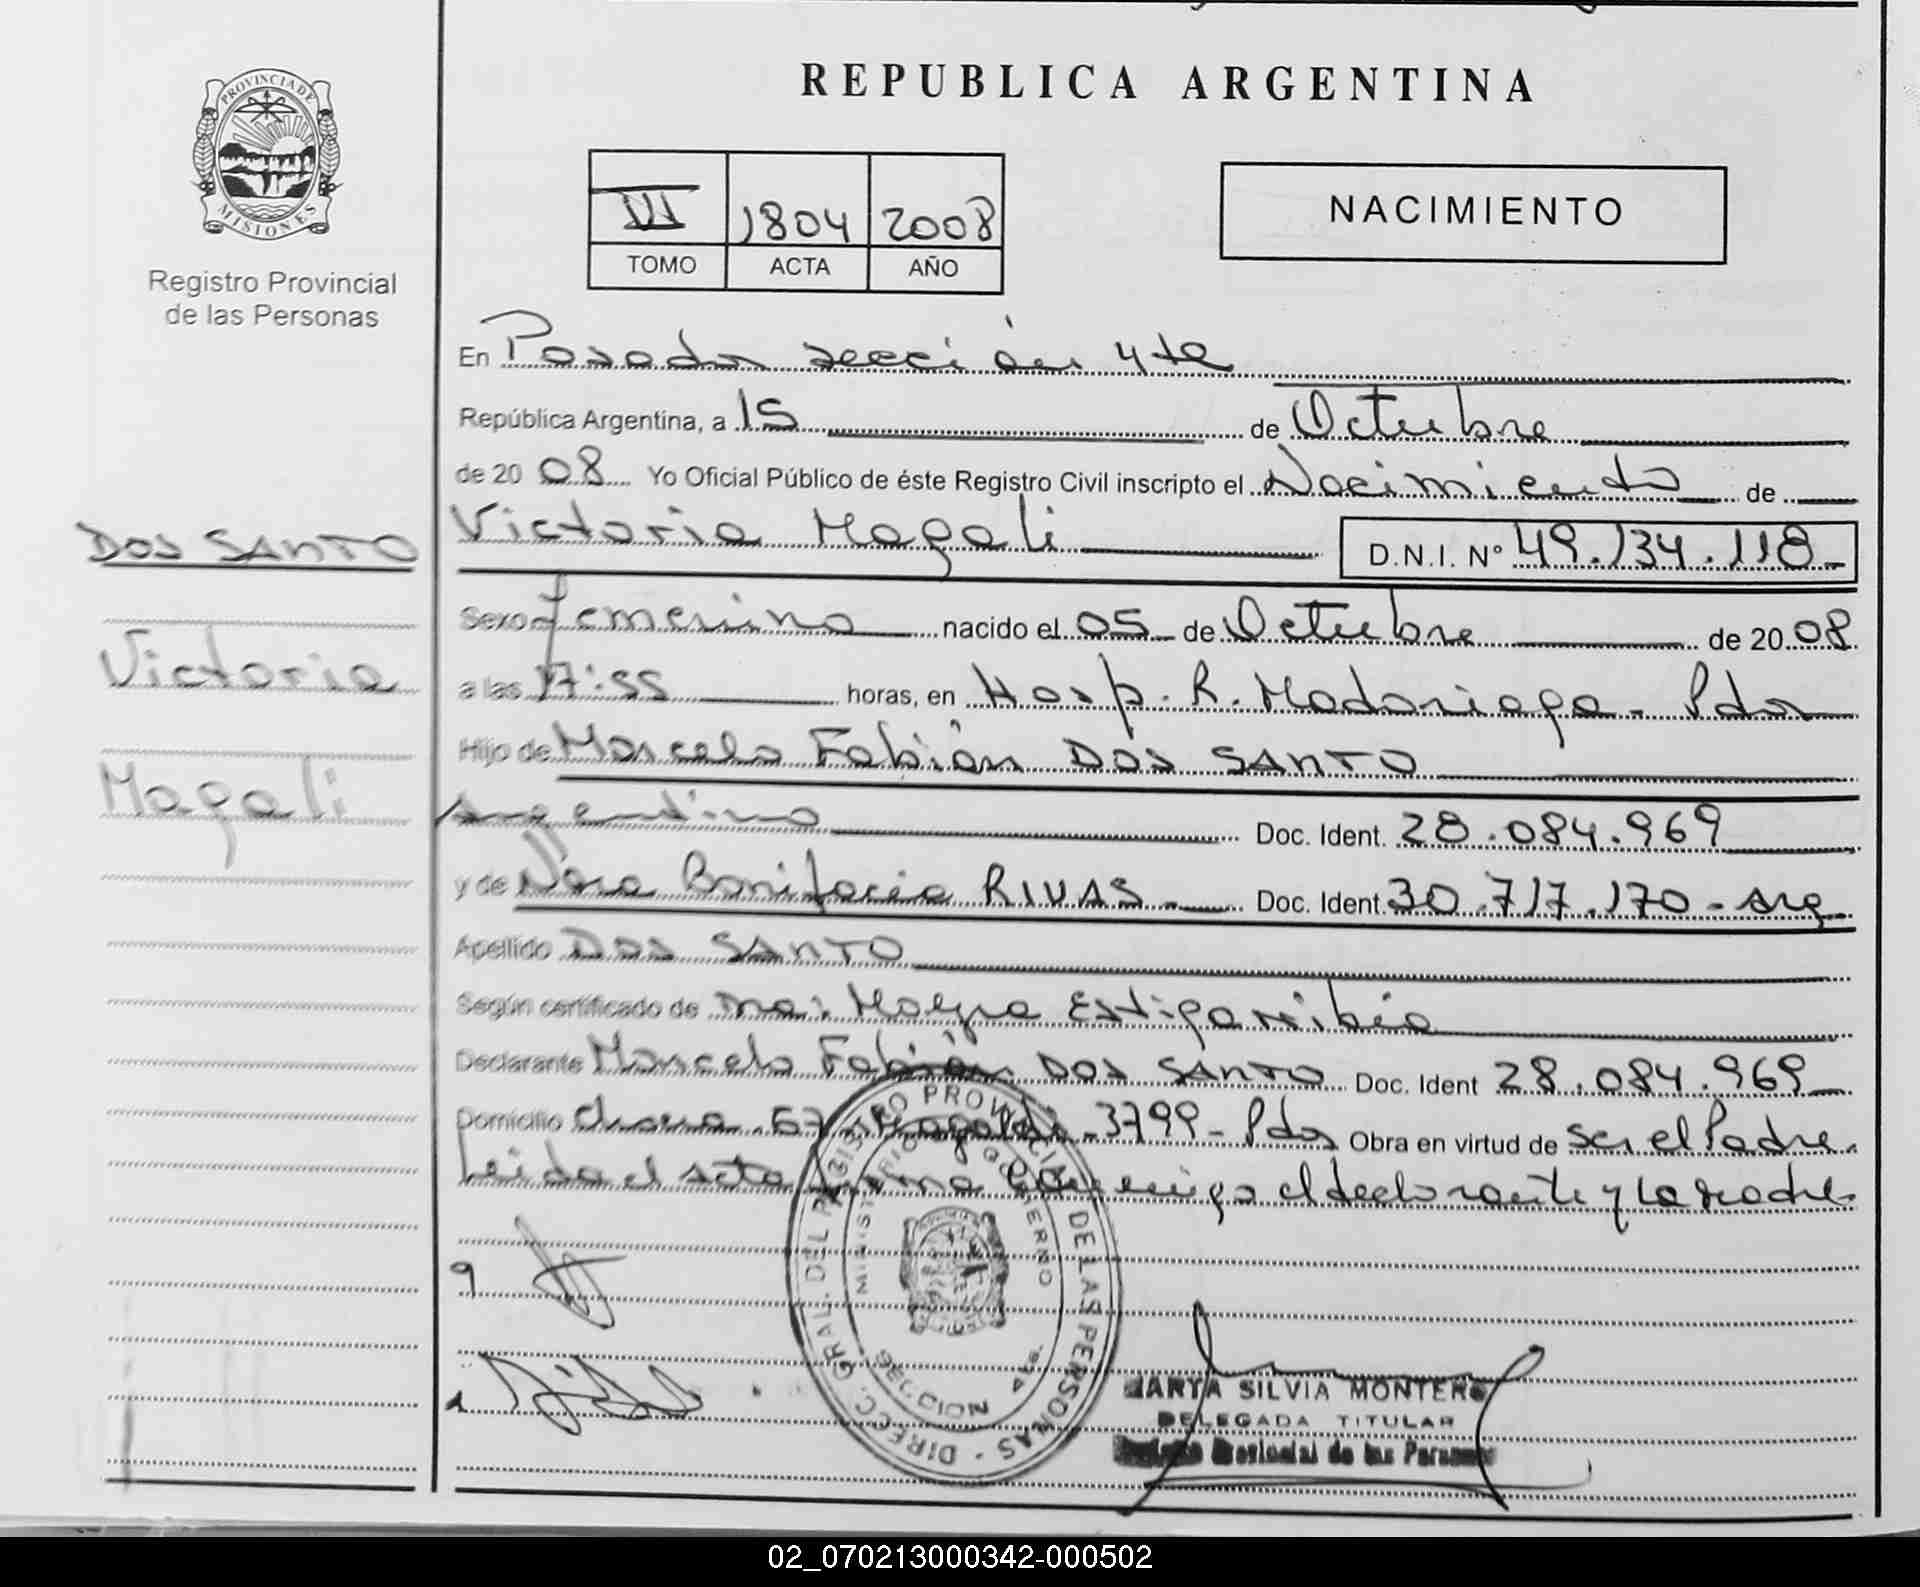 REPUBLICA ARGENTINA
PROVINCIA DE MISIONES
Registro Provincial
de las Personas
III 1804 2008
TOMO ACTA AÑO
NACIMIENTO
En Posadas sección 4ta
República Argentina, a 15 de Octubre
de 2008 Yo Oficial Público de éste Registro Civil inscripto el Nacimiento de
Victoria Magali D.N.I. Nº 49.134.118-
DOS SANTO
Victoria
Magali
Sexo femenino nacido el 05 de Octubre de 2008
a las 17:55 horas, en Hosp. R. Madariaga - Pdas
Hijo de Marcelo Fabián DOS SANTO
Argentino Doc. Ident. 28.084.969
y de Nora Bonifacia RIVAS - Doc. Ident. 30.717.170 - Arg
Apellido DOS SANTO
Según certificado de Estigarribia
Declarante Marcelo Fabián DOS SANTO Doc. Ident 28.084.969
Domicilio chacra 67 - Magaldi - 3799 - Pdas Obra en virtud de ser el Padre.
Leida el acta firma conmigo el declarante y la madre
DIRECC. GRAL. DEL REGISTRO PROVINCIAL DE LAS PERSONAS
MINISTERIO DE GOBIERNO
SECCION 4ta.
MARTA SILVIA MONTERO
DELEGADA TITULAR
Registro Provincial de las Personas
02_070213000342-000502